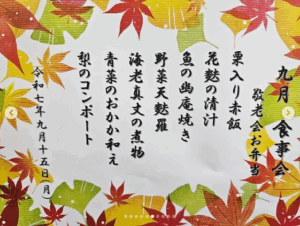 九月 食事会
敬老会お弁当
栗入り赤飯
花麩の清汁
魚の幽庵焼き
野菜天麩羅
海老真丈の煮物
青菜のおかか和え
梨のコンポート
令和七年九月十五日(月)